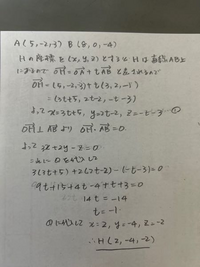 A(5,-2,-3) B(8,0,-4)
Hの座標を(x,y,z)とするとHは直線AB上
にあるので OH = OA + tAB と表されるので
OH = (5,-2,-3) + t(3,2,-1)
= (3t+5, 2t-2, -t-3)
よって x=3t+5, y=2t-2, z=-t-3 ①
OH⊥AB より OH・AB=0.
よって 3x+2y-z=0
これに①を代入して
3(3t+5)+2(2t-2)-(-t-3)=0
9t+15+4t-4+t+3=0
14t=-14
t=-1
①に代入して x=2, y=-4, z=-2
∴H(2,-4,-2)